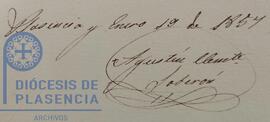 Plasencia y Enero 19 de 1857
Agustín Clemte
Soberón
DIÓCESIS DE
PLASENCIA
ARCHIVOS